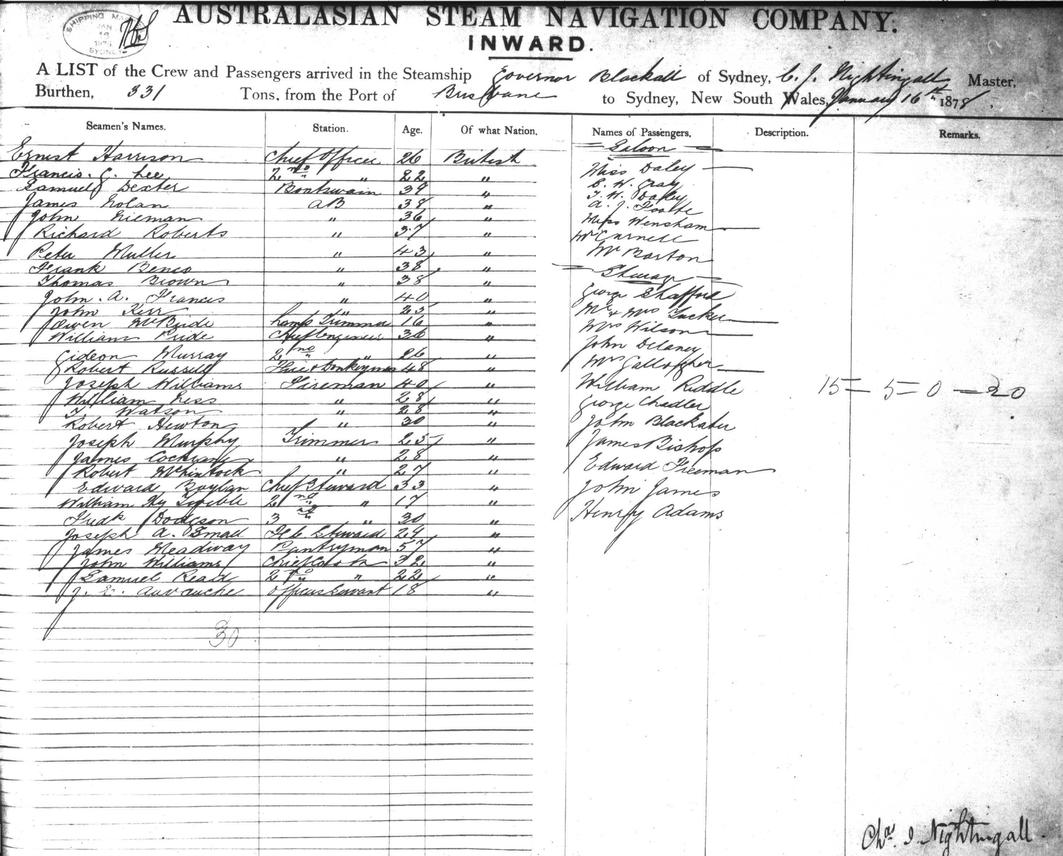 SHIPPING MA
JAN
SYDNEY
AUSTRALASIAN STEAM NAVIGATION COMPANY.
INWARD.
A LIST of the Crew and Passengers arrived in the Steamship Governor Blackall of Sydney, C. J. Nightingall Master,
Burthen, 331 Tons, from the Port of Brisbane to Sydney, New South Wales, January 16th 1878
Seamen's Names. Station. Age. Of what Nation. Names of Passengers, Description. Remarks.
Saloon
Ernest Harrison Chief Officer 26 British
Francis. G. Lee 2nd " 22 "
Samuel Dexter Boatswain 39 "
James Nolan AB 38 "
John " 36 "
Richard Roberts " 37 "
Peter Muller " 43 "
Frank " 38 "
Thomas Brown " 38 "
John. A. Francis " 40 "
John Kerr " 23 "
Owen McBride Lamp Trimmer 16 "
William Pride Chief Engineer 36 "
Gideon Murray 2nd " 26 "
Robert Russell Donkeyman 48 "
Joseph Williams Fireman 40 "
William " 28 "
T. Watson " 28 "
Robert Newton " 30 "
Joseph Murphy Trimmer 25 "
James Cochrane " 28 "
Robert McLintock " 27 "
Edward Boylan Chief Steward 33 "
William Hy 2nd " 17 "
Fredk Dodgson 3rd " 30 "
Joseph A. Small Steward 24 "
James Meadway Pantryman 57 "
John Williams Chief Cook 32 "
Samuel Read 2nd " 22 "
Officers Servant 18 "
30
Miss Daley
C. W. Gray
T. W. Daley
A. J.
Miss Wensham
Mr Curnell
Mr Barton
Steerage
George Shafford
Mr & Mrs Tucker
Mrs Wilson
John Delaney
Mrs Gallogher
William Riddle 15 = 5 = 0 = 20
George Chadler
John Blackater
James Bishop
Edward Freeman
John James
Henry Adams
Chas J. Nightingall.